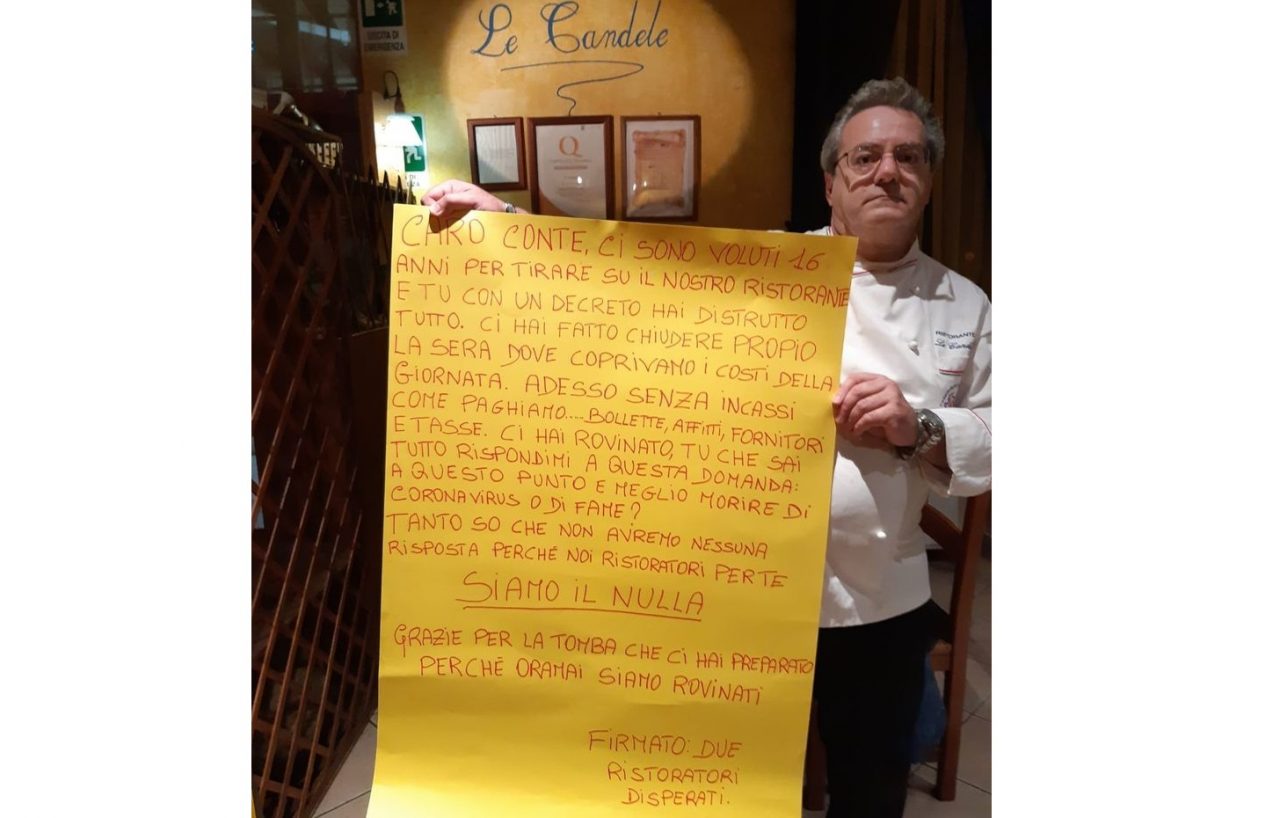 USCITA DI
EMERGENZA
Le Candele
Q
CARO CONTE, CI SONO VOLUTI 16
ANNI PER TIRARE SU IL NOSTRO RISTORANTE
E TU CON UN DECRETO HAI DISTRUTTO
TUTTO. CI HAI FATTO CHIUDERE PROPIO
LA SERA DOVE COPRIVAMO I COSTI DELLA
GIORNATA. ADESSO SENZA INCASSI
COME PAGHIAMO.... BOLLETTE, AFFITTI, FORNITORI
E TASSE. CI HAI ROVINATO, TU CHE SAI
TUTTO RISPONDIMI A QUESTA DOMANDA:
A QUESTO PUNTO E MEGLIO MORIRE DI
CORONAVIRUS O DI FAME?
TANTO SO CHE NON AVREMO NESSUNA
RISPOSTA PERCHÉ NOI RISTORATORI PER TE
SIAMO IL NULLA
GRAZIE PER LA TOMBA CHE CI HAI PREPARATO
PERCHÉ ORAMAI SIAMO ROVINATI
FIRMATO: DUE
RISTORATORI
DISPERATI.
RISTORANTE
Le Cand